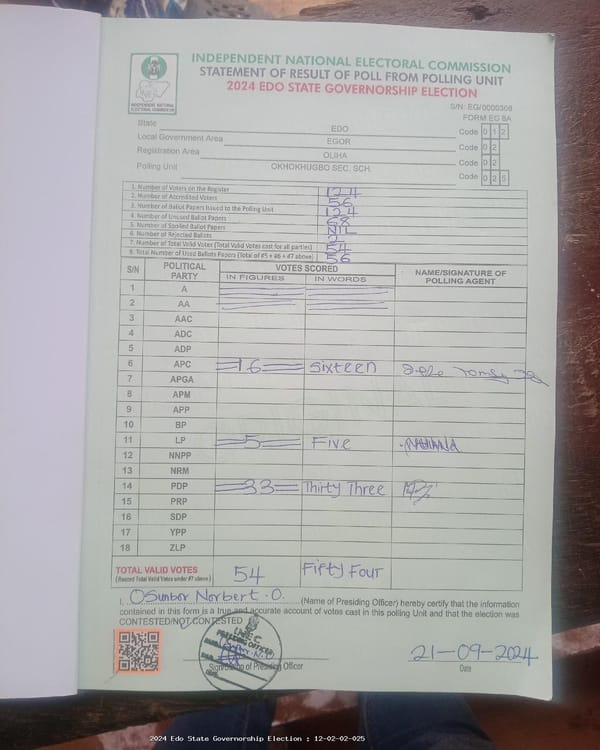 INDEPENDENT NATIONAL ELECTORAL COMMISSION
STATEMENT OF RESULT OF POLL FROM POLLING UNIT
2024 EDO STATE GOVERNORSHIP ELECTION
INDEPENDENT NATIONAL ELECTORAL COMMISSION
S/N: EG/0000308
FORM EC 8A
State EDO Code 0 1 2
Local Government Area EGOR Code 0 2
Registration Area OLIHA Code 0 2
Polling Unit OKHOKHUGBO SEC. SCH. Code 0 2 5
1. Number of Voters on the Register 124
2. Number of Accredited Voters 56
3. Number of Ballot Papers Issued to the Polling Unit 124
4. Number of Unused Ballot Papers 68
5. Number of Spoiled Ballot Papers NIL
6. Number of Rejected Ballots 2
7. Number of Total Valid Votes (Total Valid Votes cast for all parties) 54
8. Total Number of Used Ballots Papers (Total of #5 + #6 + #7 above) 56
S/N POLITICAL PARTY VOTES SCORED NAME/SIGNATURE OF POLLING AGENT
IN FIGURES IN WORDS
1 A
2 AA
3 AAC
4 ADC
5 ADP
6 APC 16 Sixteen
7 APGA
8 APM
9 APP
10 BP
11 LP 5 Five
12 NNPP
13 NRM
14 PDP 33 Thirty Three
15 PRP
16 SDP
17 YPP
18 ZLP
TOTAL VALID VOTES 54 Fifty Four
(Record Total Valid Votes under #7 above)
I, Osunbor Norbert .O. (Name of Presiding Officer) hereby certify that the information
contained in this form is a true and accurate account of votes cast in this polling Unit and that the election was
CONTESTED/NOT CONTESTED
I.N.E.C
PRESIDING OFFICER
Signature of Presiding Officer
21-09-2024
Date
2024 Edo State Governorship Election : 12-02-02-025